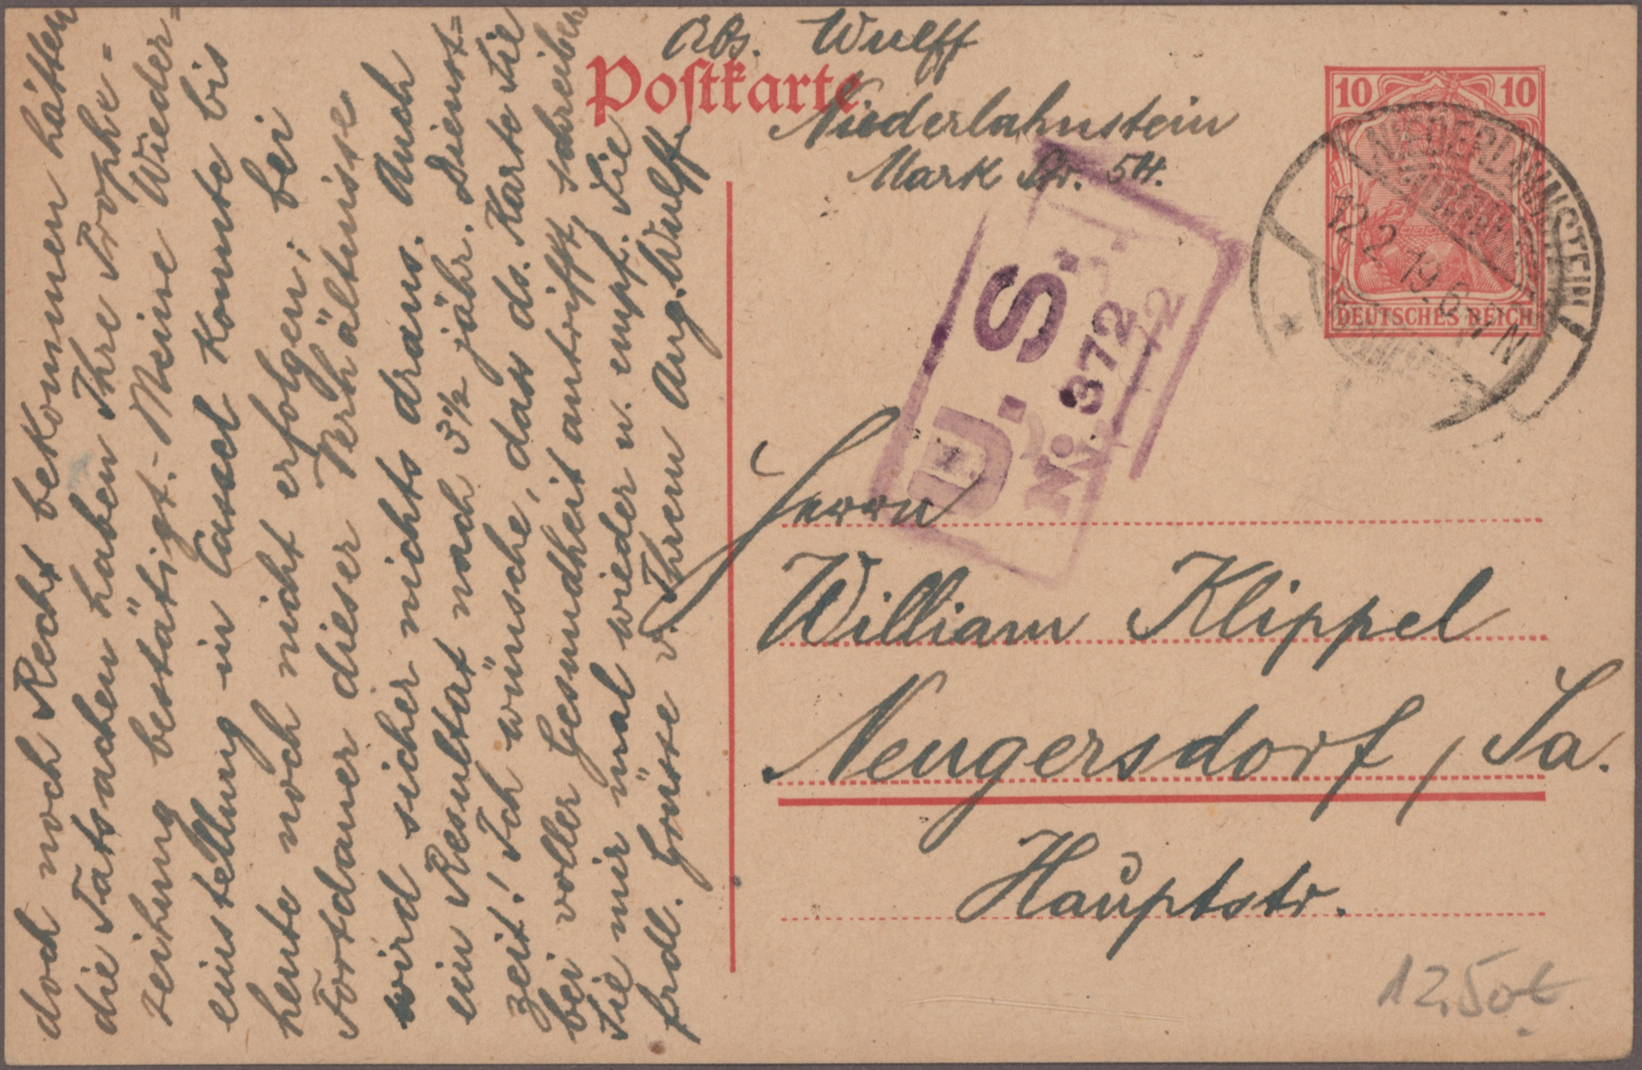 Abs. Wulff
Postkarte
Niederlahnstein
Mark Str. 54.
10 10
DEUTSCHES REICH
NIEDERLAHNSTEIN
12.2.19.6-7N
U. S.
No. 372
Herrn
William Klippel
Neugersdorf, Sa.
Hauptstr.
12,50
doch noch Recht bekommen hätten
die Tatsachen haben Ihre Prophe-
zeihung bestätigt. - Meine Wieder-
einstellung in Cassel konnte bis
heute noch nicht erfolgen; bei
Fortdauer dieser Verhältnisse
wird sicher nichts draus. Auch
ein Resultat nach 3½ jähr. Dienst-
zeit! Ich wünsche, dass ds. Karte Sie
bei voller Gesundheit antrifft, schreiben
Sie mir mal wieder u. empf. Sie
frdl. Grüsse v. Ihrem Aug. Wulff.